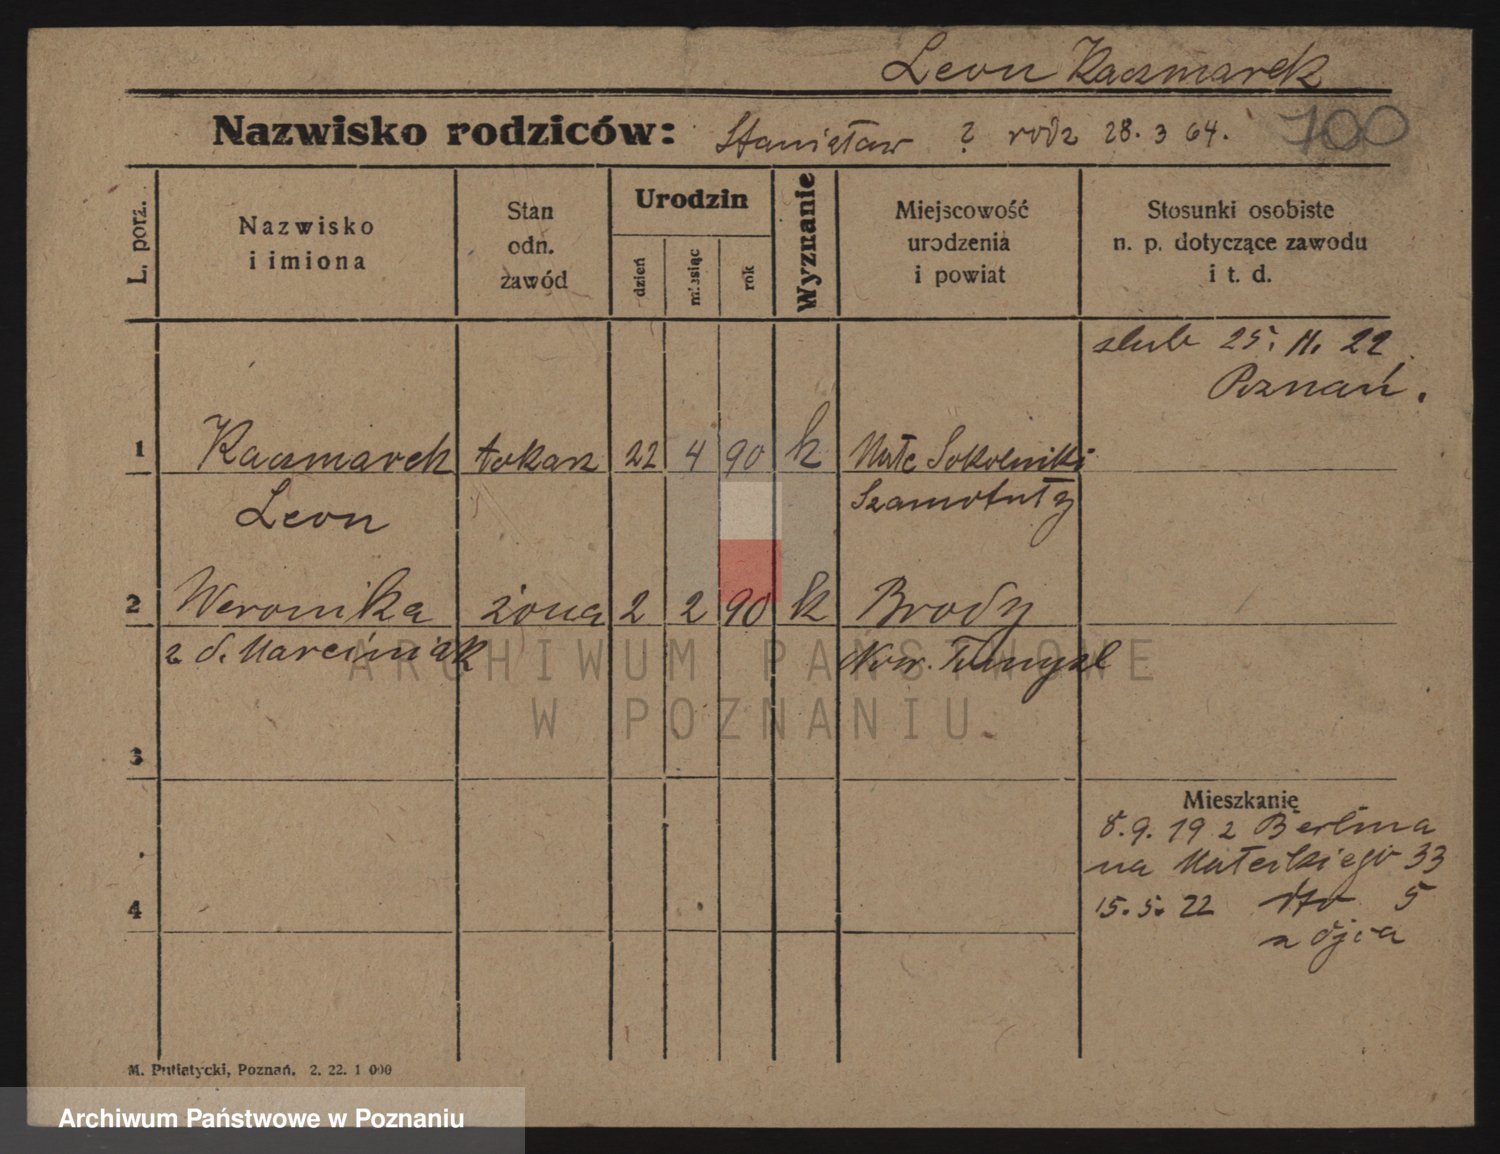 Leon Kaczmarek
Nazwisko rodziców: Stanisław ? rodz 28. 3 64. 100
L. porz.
Nazwisko
i imiona
Stan
odn.
zawód
Urodzin
dzień
miesiąc
rok
Wyznanie
Miejscowość
urodzenia
i powiat
Stosunki osobiste
n. p. dotyczące zawodu
i t. d.
slub 25. 11. 22
Poznań.
1 Kaczmarek tokarz 22 4 90 k Małe Sokolniki
Leon Szamotuły
2 Weronika żona 2 2 90 k Brody
z d. Marciniak Now. Tomyśl
3
Mieszkanie
8. 9. 19 z Berlina
na Małeckiego 33
4 15. 5. 22 dto 5
z ojca
M. Putiatycki, Poznań. 2. 22. 1 000
ARCHIWUM PAŃSTWOWE
W POZNANIU
Archiwum Państwowe w Poznaniu